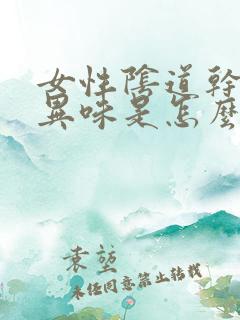 女性陰道幹
異味是怎麼
袁堃
未经同意禁止转载